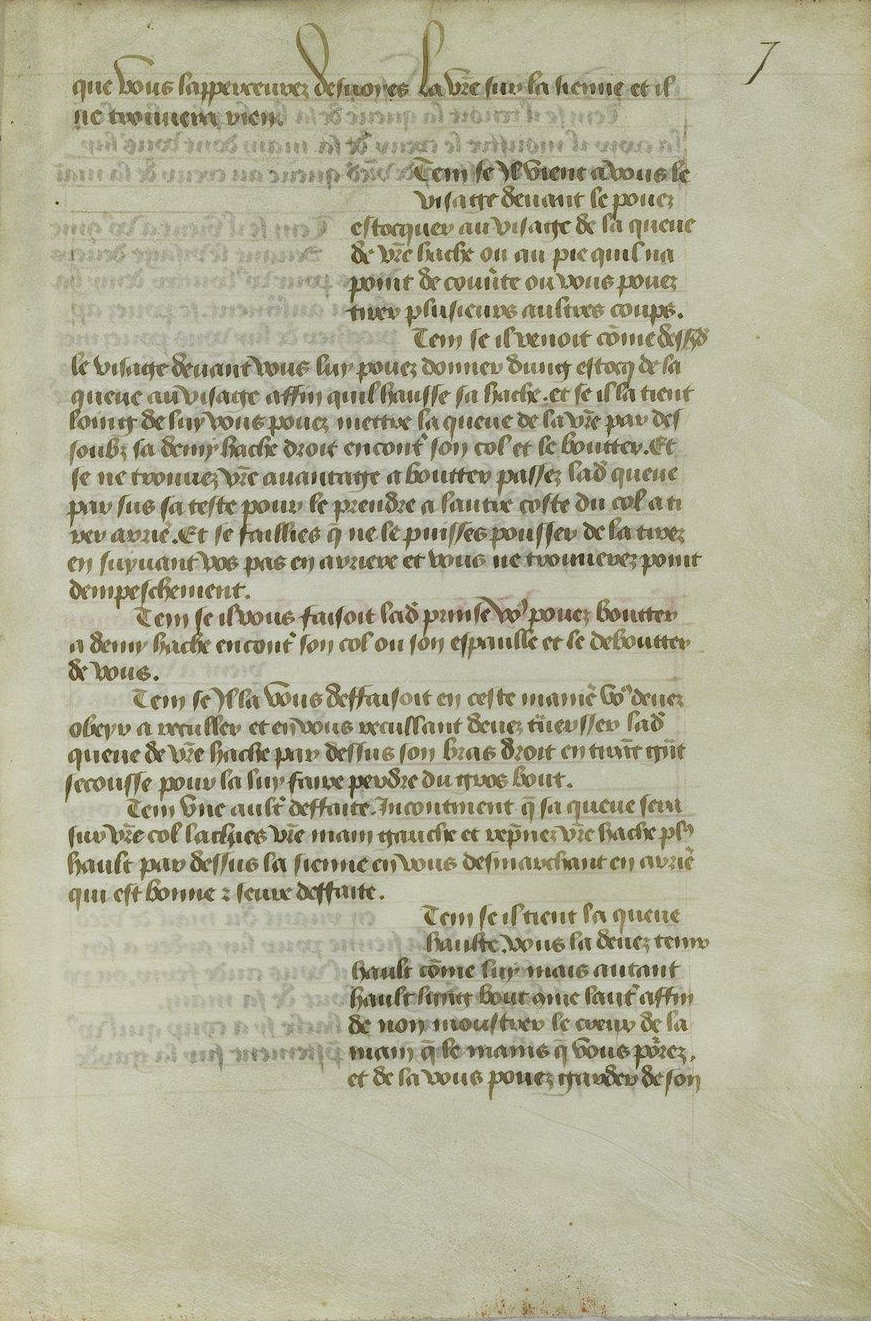 7
que vous lappercevrez desmores la vr̃e sur la sienne et il
ne trouvera rien.
Tem se Il vient a vous le
visaige devant le povez
estocquer au visaige de la queue
de vr̃e hache ou au pie quil na
point de couv̾te ou vous povez
tirer plusieurs aultres coups.
Tem se il venoit cõme dessꝰd̾
le visaige devant vous luy povez donner dung estocq de la
queue au visaige affin quil hausse sa hache. et se il la tient
loing de luy vous povez mettre la queue de la vr̃e par des
soubz sa demy hache droit encont̾ son col et le boutter. Et
se ne trouvez vr̃e avantaige a boutter passez lad̾ queue
par sus sa teste pour le prendre a lautre coste du col a ti
rer arriẽ. Et se faillies q̃ ne le puisses pousser de la tirez
en suyvant vos pas en arriere et vous ne trouverez point
dempeschement.
Tem se il vous faisoit lad̾ prinse voꝰ povez boutter
a demy hache encont̾ son col ou son espaulle et le deboutter
de vous.
Tem se Il la vous deffaisoit en ceste maniẽ voꝰ devez
obeyr a reculler et en vous recullant devez tũersser lad̾
queue de vr̃e hache par dessus son bras droit en tirãt grãt
secousse pour la luy faire perdre du gros bout.
Tem vne ault̾ deffaite. Incontinent q̃ sa queue sera
sur vr̃e col lachies vr̃e main gauche et rep̃nez vr̃e hache plꝰ
hault par dessus la sienne en vous desmarchant en arriẽ
qui est bonne ⁊ seure deffaite.
Tem se il tient la queue
haulte. vous la devez tenir
hault cõme luy mais autant
hault lung bout q̃me laut̾ affin
de non moustrer le creux de la
main q̃ le mains q̃ vous põrez.
et de la vous povez garder de son